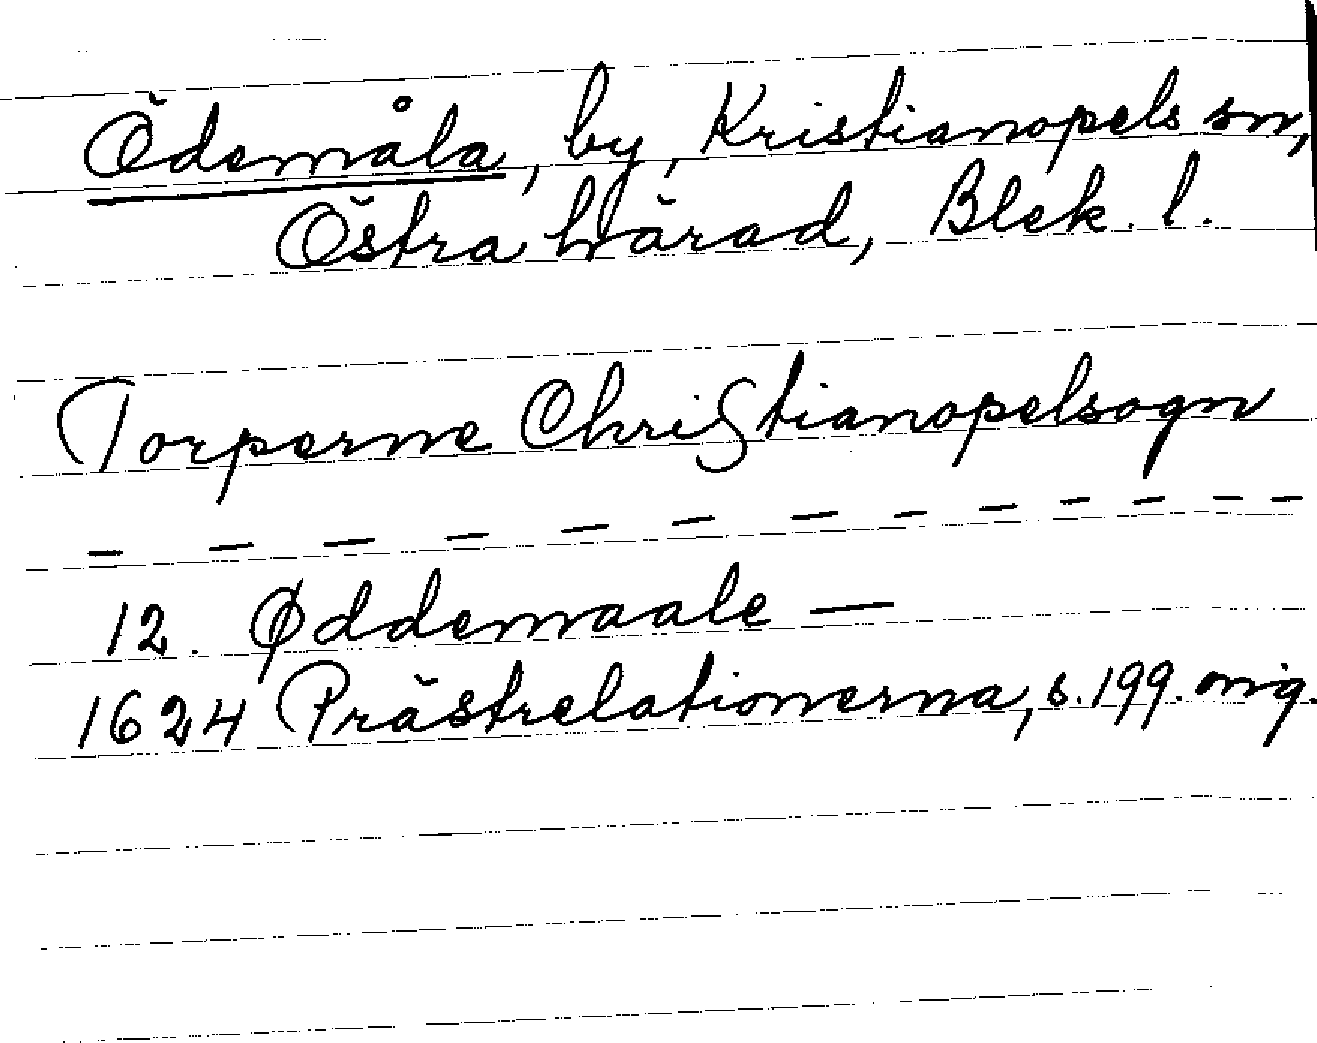 Ödemåla, by, Kristianopels sn,
Östra härad, Blek. l.
Torperne Christianopelsogn
- - - - - - - - - - - -
12. Øddemaale —
1624 Prästrelationerna, s. 199. orig.